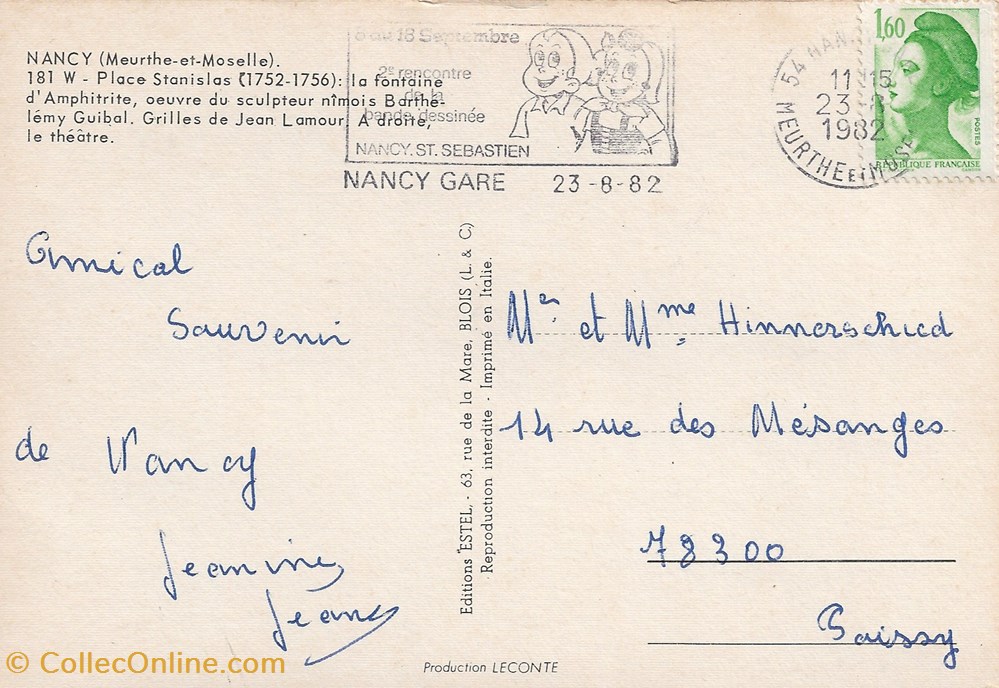 NANCY (Meurthe-et-Moselle).
181 W - Place Stanislas (1752-1756): la fontaine
d'Amphitrite, oeuvre du sculpteur nîmois Barthé-
lémy Guibal. Grilles de Jean Lamour. A droite,
le théâtre.
8 au 18 Septembre
2e rencontre
de la
bande dessinée
NANCY. ST. SEBASTIEN
NANCY GARE 23-8-82
54
11 15
23 - 8
1982
MEURTHE ET MOSELLE
1,60
POSTES
REPUBLIQUE FRANÇAISE
Amical
Souvenir
de Nancy
Jeanine
Jean
Editions "ESTEL, - 63, rue de la Mare, BLOIS (L. & C)
Reproduction interdite - Imprimé en Italie.
Mr. et Mme Hinnerschied
14 rue des Mésanges
78300
Poissy
Production LECONTE
© CollecOnline.com